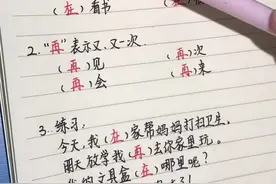 （在）看书
2. “再”表示又，又一次.
（再）见 （再）次
（再）会 （再）来
3. 练习：
今天，我（在）家帮妈妈打扫卫生。
明天放学我（再）去你家里玩。
我的文具盒（在）哪里呢？